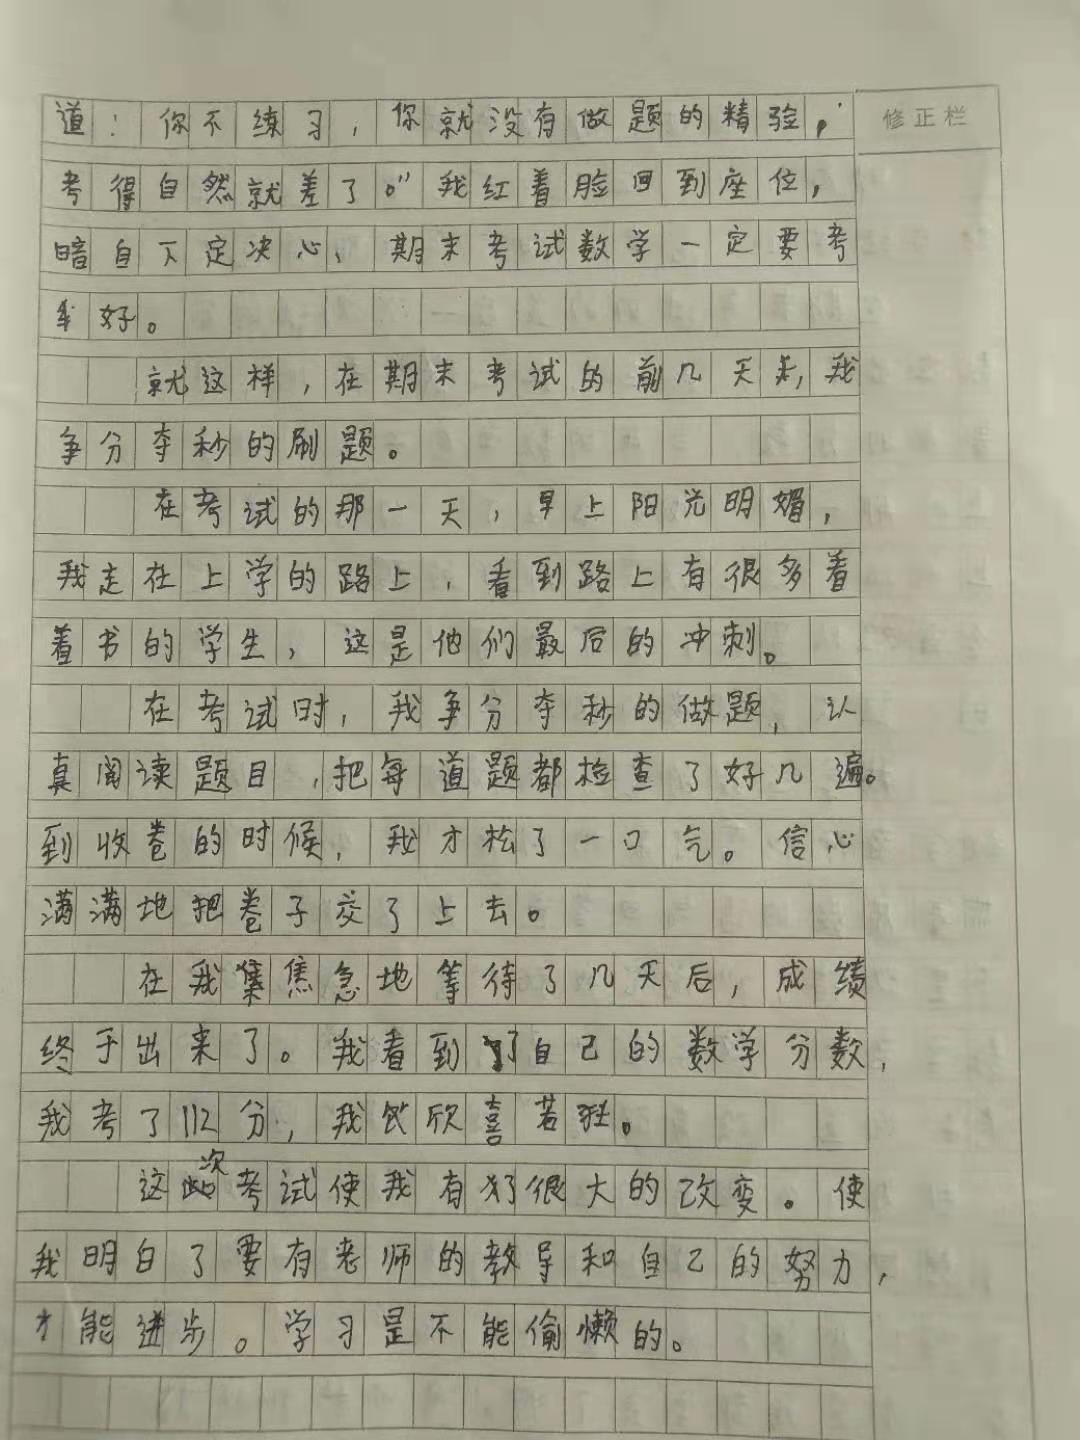 修正栏
道：你不练习，你就没有做题的精验，
考得自然就差了。”我红着脸回到座位，
暗自下定决心，期末考试数学一定要考
好。
就这样，在期末考试的前几天来，我
争分夺秒的刷题。
在考试的那一天，早上阳光明媚，
我走在上学的路上，看到路上有很多看
着书的学生，这是他们最后的冲刺。
在考试时，我争分夺秒的做题，认
真阅读题目，把每道题都检查了好几遍。
到收卷的时候，我才松了一口气。信心
满满地把卷子交了上去。
在我焦急地等待了几天后，成绩
终于出来了。我看到了自己的数学分数，
我考了112分，我欣喜若狂。
这次考试使我有了很大的改变。使
我明白了要有老师的教导和自己的努力，
才能进步。学习是不能偷懒的。